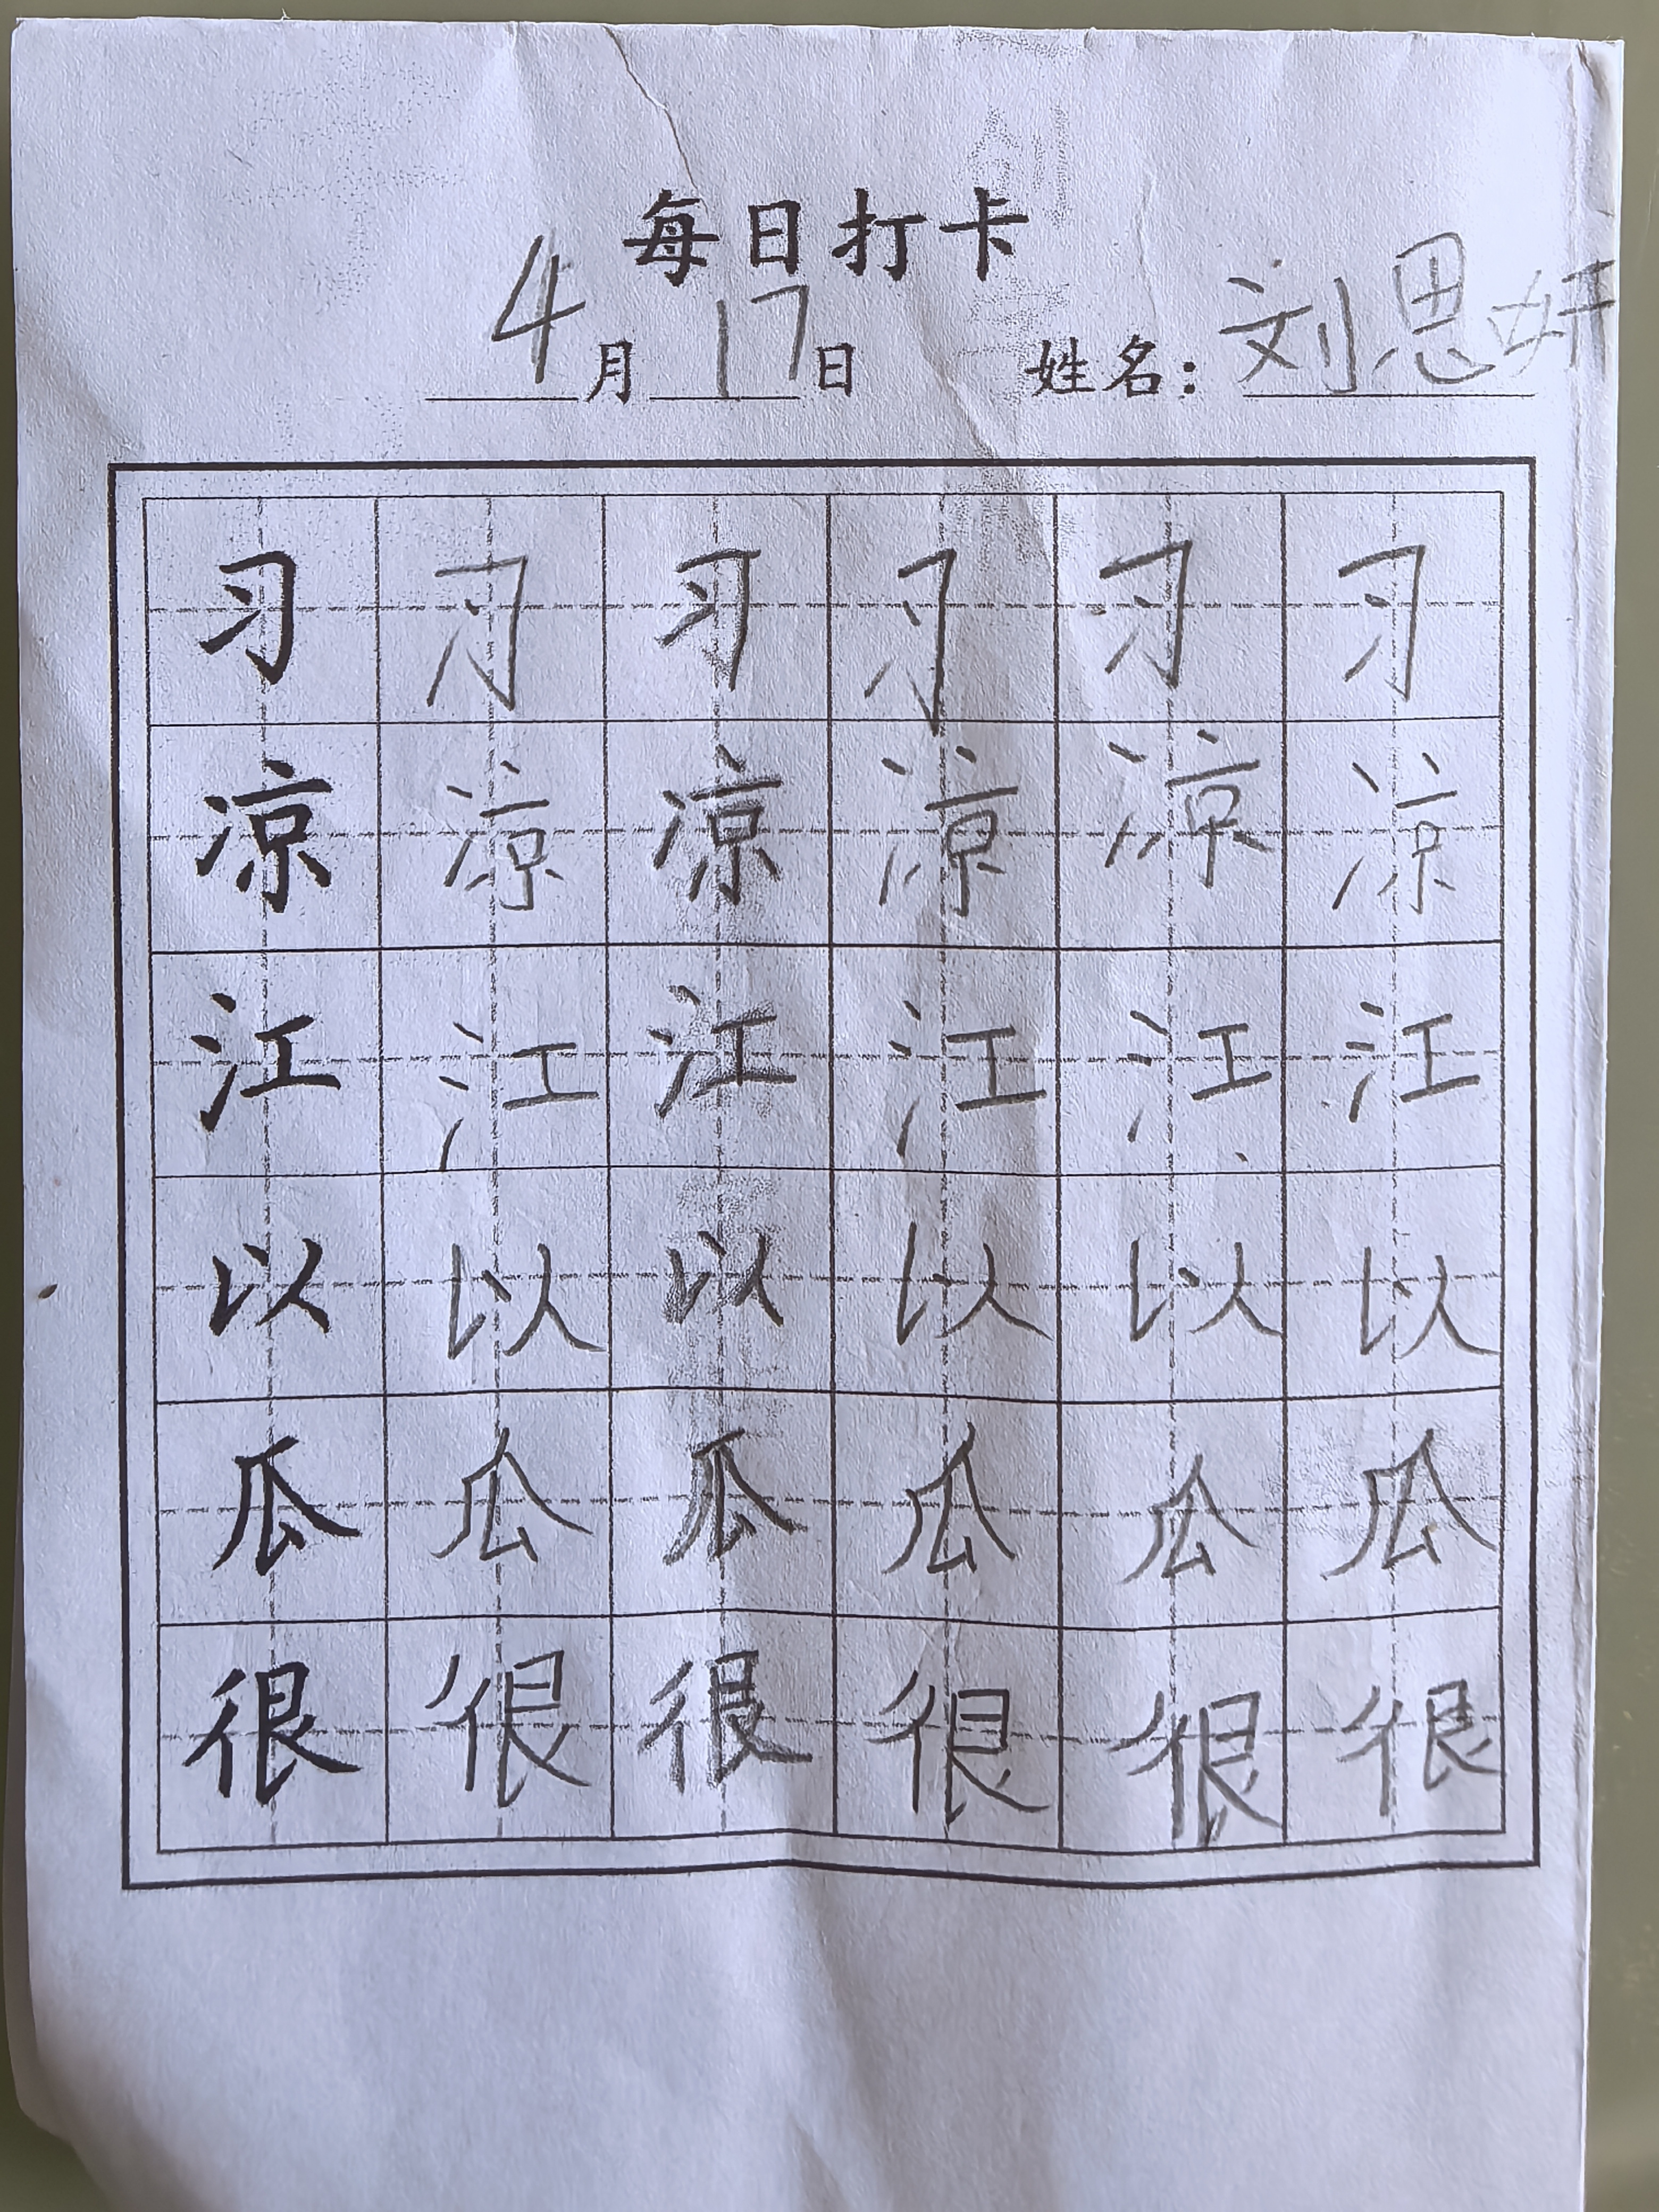 每日打卡
4月17日 姓名：刘思妍
习 习 习 习 习 习
凉 凉 凉 凉 凉 凉
江 江 江 江 江 江
以 以 以 以 以 以
瓜 瓜 瓜 瓜 瓜 瓜
很 很 很 很 很 很